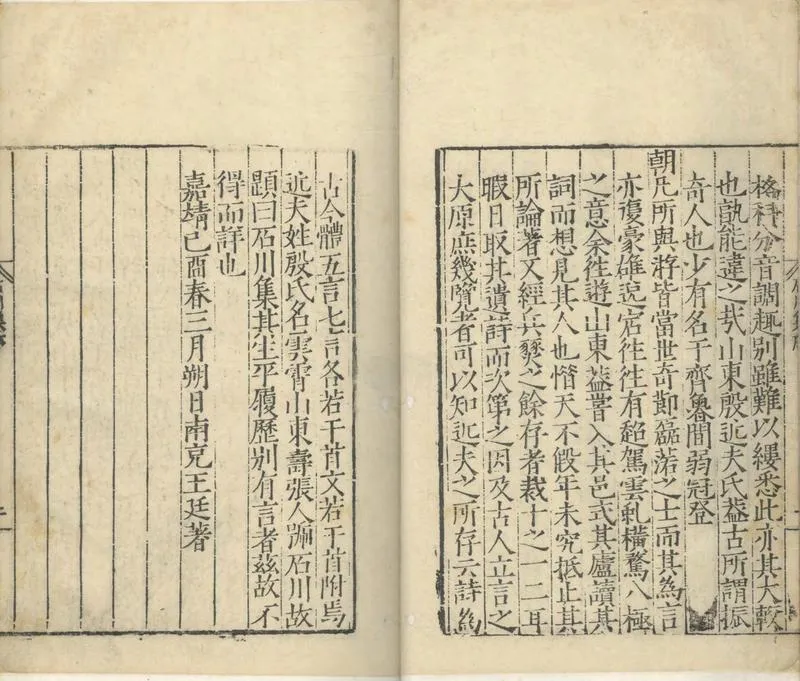 格裁分音調趣別雖難以縷悉此亦其大較
也孰能違之哉山東殷近夫氏葢古所謂振
奇人也少有名于齊魯間弱冠登
朝凡所與游皆當世奇節磊落之士而其為言
亦復豪雄逸宕徃徃有超駕雲虬橫騖八極
之意余徃遊山東葢嘗入其邑式其廬讀其
詞而想見其人也惜天不假年未究抵止其
所論著又經兵燹之餘存者裁十之一二耳
暇日取其遺詩而次第之因及古人立言之
大原庶幾覽者可以知近夫之所存云詩為
古今體五言七言各若干首文若干首附焉
近夫姓殷氏名雲霄山東壽張人號石川故
題曰石川集其生平履歷別有言者茲故不
得而詳也
嘉靖己酉春三月朔日南充王廷著